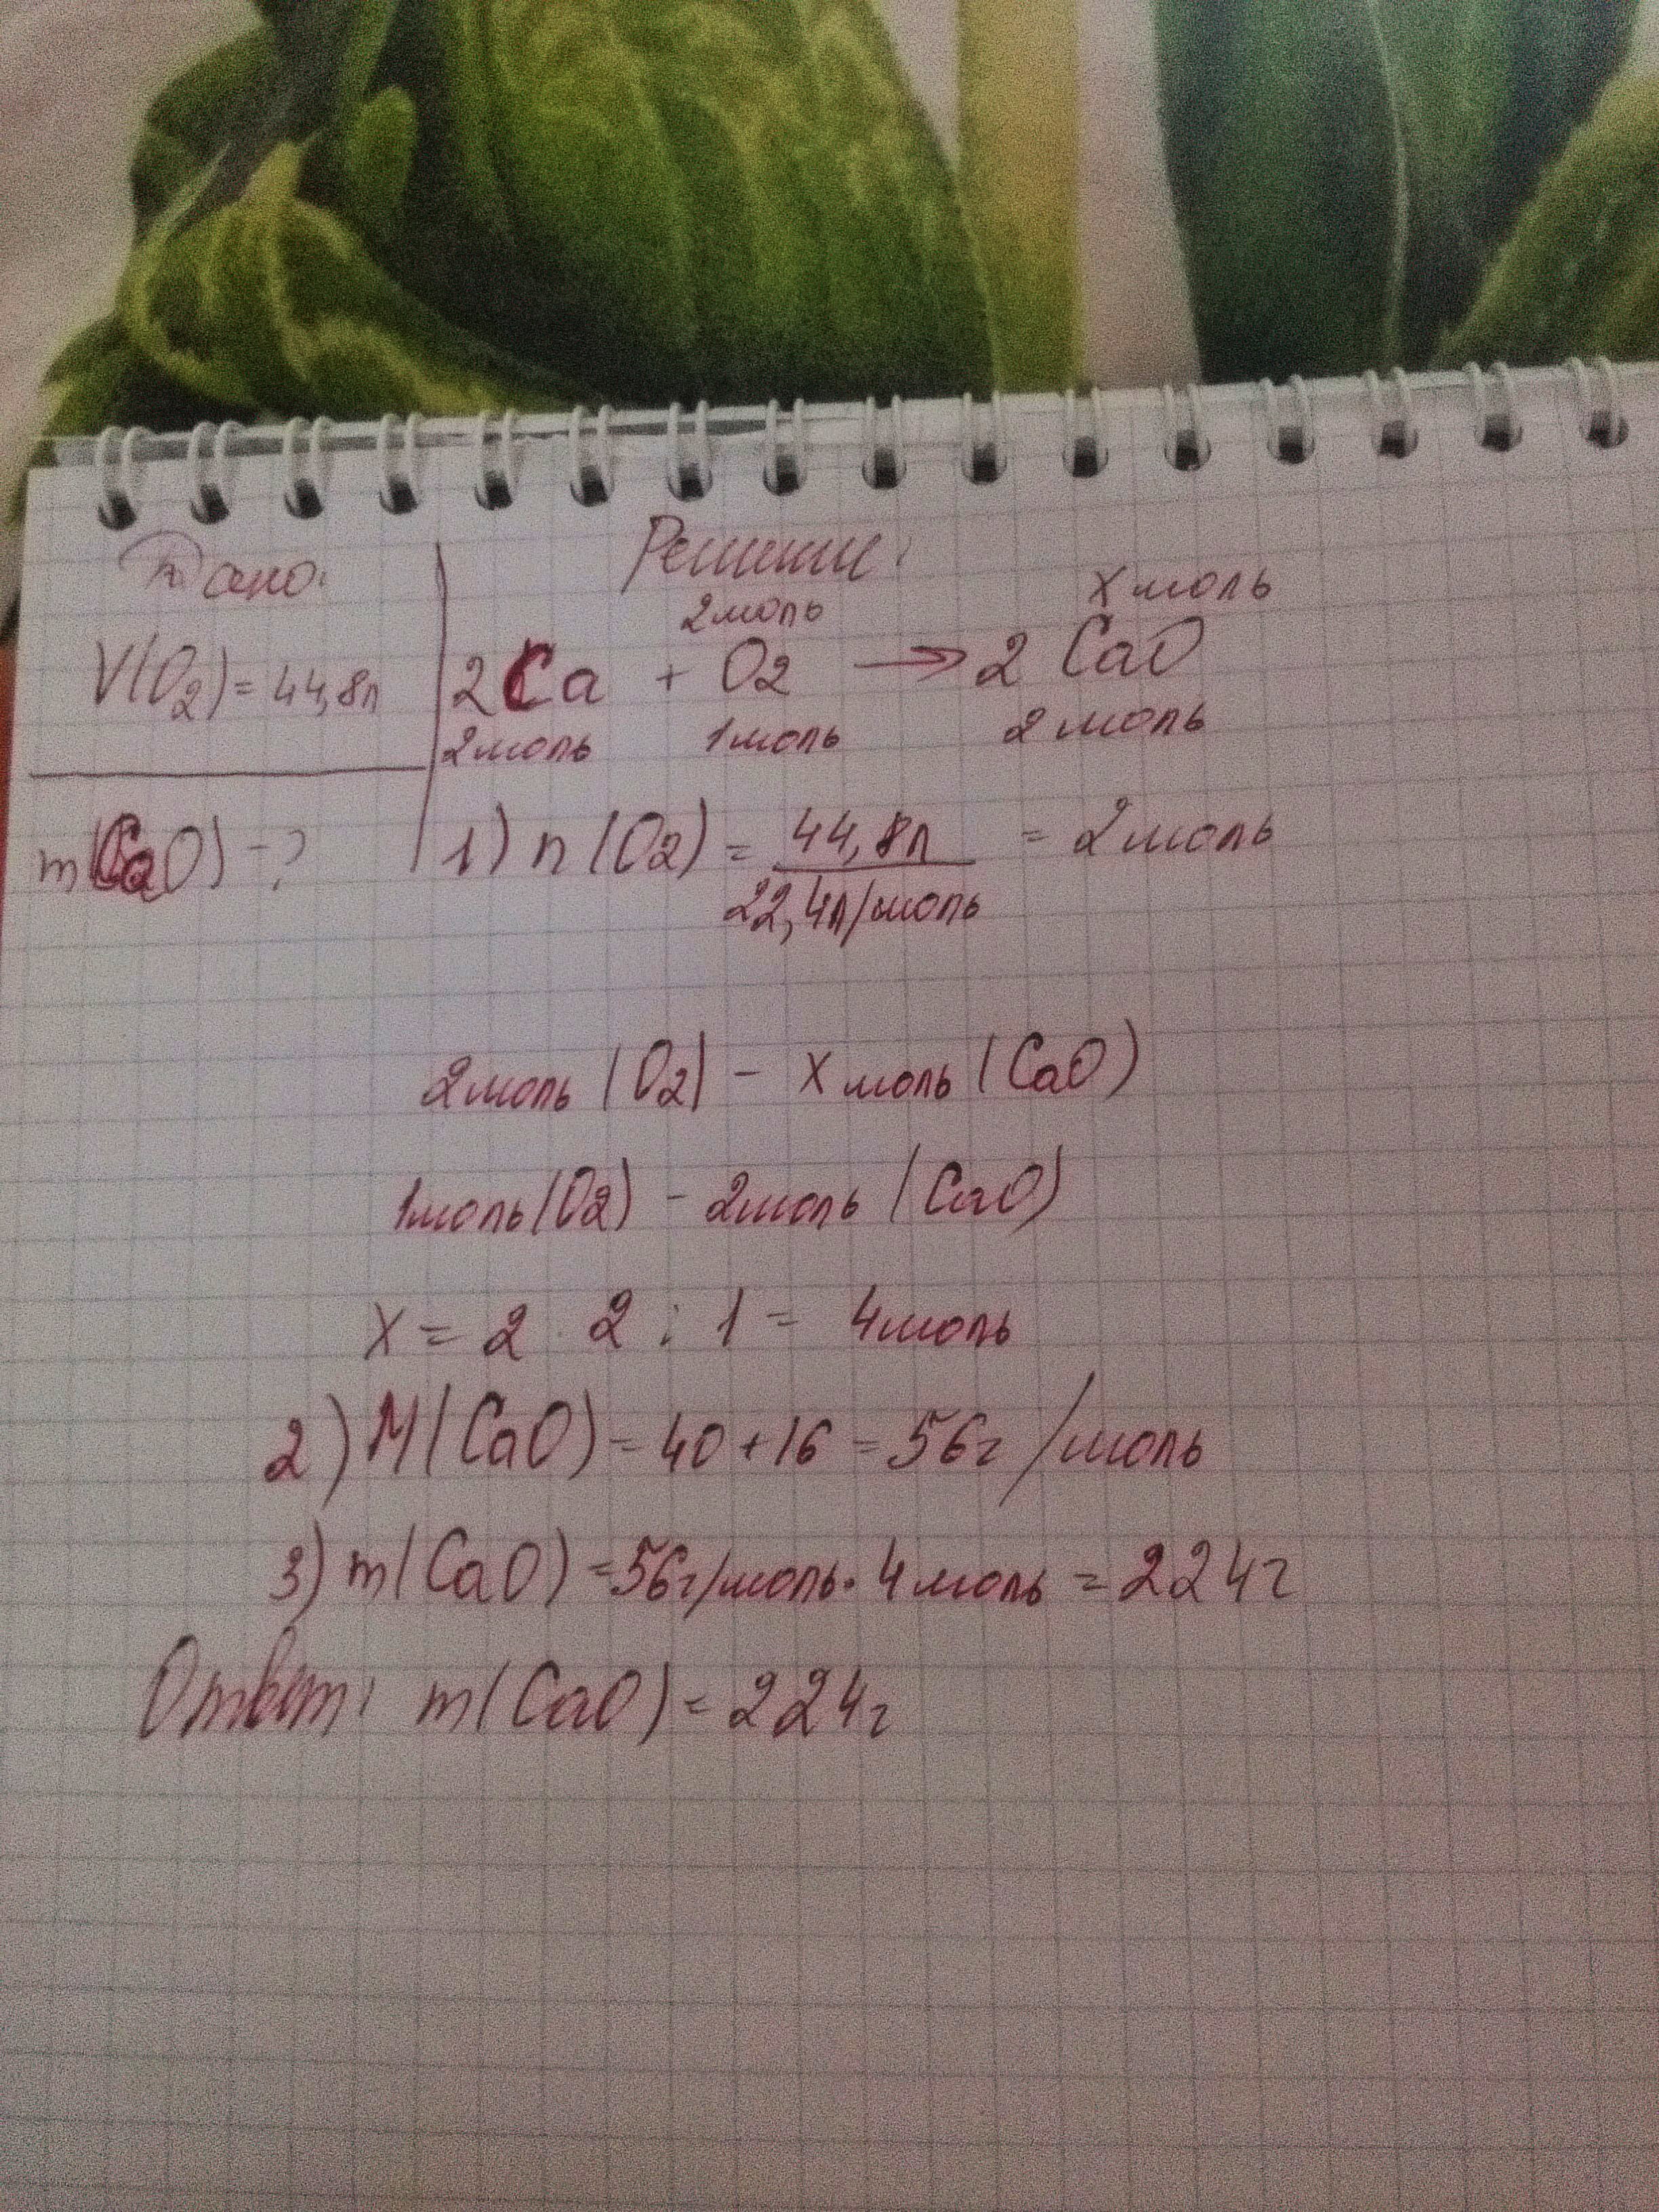 Дано:
Решение:
2моль
x моль
V(O2) = 44,8л
2Ca + O2 → 2 CaO
2моль 1моль 2 моль
m(CaO) - ?
1) n (O2) = 44,8л / 22,4л/моль = 2моль
2моль (O2) - x моль (CaO)
1моль (O2) - 2моль (CaO)
x = 2 · 2 : 1 = 4моль
2) M(CaO) = 40 + 16 = 56г /моль
3) m(CaO) = 56г/моль · 4 моль = 224г
Ответ: m(CaO) = 224г